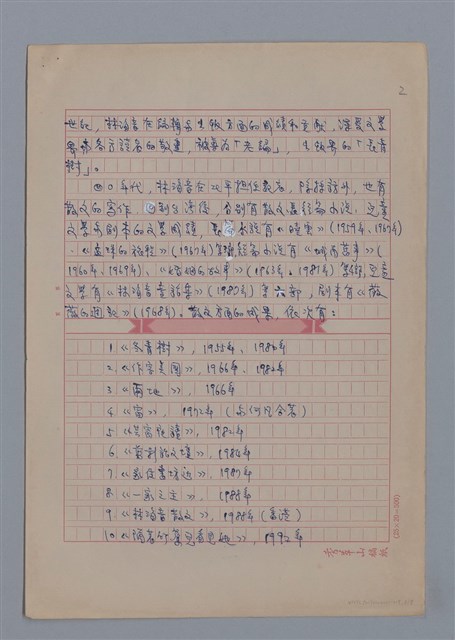 2
世紀，林海音在編輯與出版方面的成績和貢獻，深受文學
各方讀者的敬重，被喜為「老編」，出版界的「長青
樹」。
四○年代，林海音在北平擔任記者，除採訪外，也有
散文的寫作。回到台灣後，分別有散文及短篇小說、兒童
文學與劇本的文學成績，長篇小說有《曉雲》(1959年、1967年)
、《孟珠的旅程》(1967年)等，短篇小說有《城南舊事》(
1960年、1969年)、《婚姻的故事》(1963年、1981年)等，兒童
文學有《林海音童話集》(1980年)等六部，劇本有《薇
薇的週記》(1968年)。散文方面的成果，依次有：
1.《冬青樹》，1955年、1980年
2.《作客美國》，1966年、1982年
3.《兩地》，1966年
4.《窗》，1972年（與何凡合著）
5.《芸窗夜讀》，1982年
6.《剪影話文壇》，1984年
7.《家住書坊邊》，1987年
8.《一家之主》，1988年
9.《林海音散文》，1988年（香港）
10.《隔著竹簾兒看見她》，1992年
(25×20=500)
稿紙